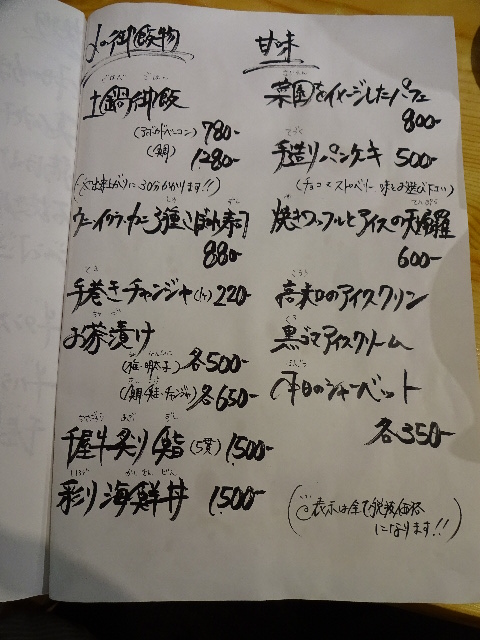 御飯物
ごはん
土鍋御飯
(アボカドベーコン) 780-
(鯛) 1,280-
出来上がりに30分かかります!!)
ウニ・イクラ・カニ3種こぼれ寿司
880-
手巻きチャンジャ(1ヶ) 220-
お茶漬け
(梅・明太子) 各500-
(鯛・鮭・チャンジャ) 各650-
千屋牛炙り鮨(5貫) 1,500-
彩り海鮮丼 1,500-
甘味
菜園をイメージしたパフェ
800-
手造りパンケーキ 500-
(チョコ or ストロベリー 味をお選び下さい)
焼きワッフルとアイスの天婦羅
600-
高末口のアイスクリン
黒ゴマアイスクリーム
本日のシャーベット
各350-
表示は全て税抜価格
になります!!)